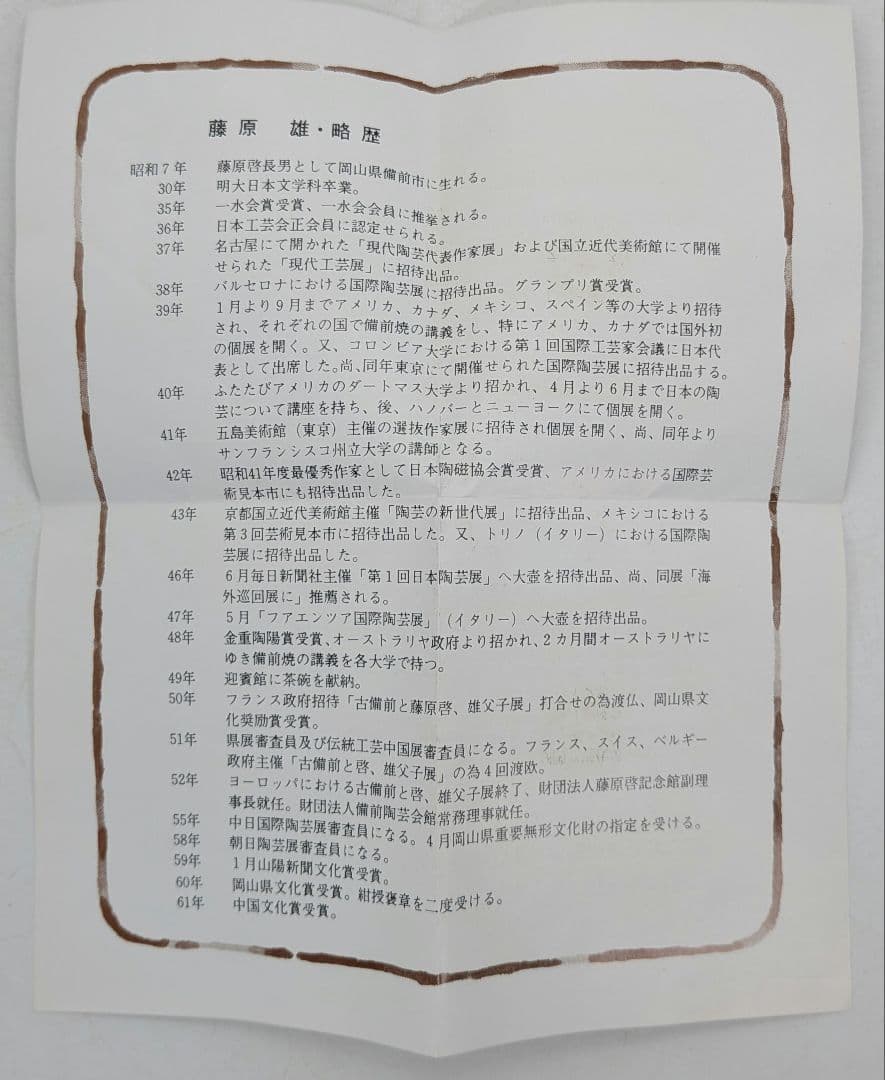 藤原 雄・略歴
昭和7年 藤原啓長男として岡山県備前市に生れる。
30年 明大日本文学科卒業。
35年 一水会賞受賞、一水会会員に推挙される。
36年 日本工芸会正会員に認定せられる。
37年 名古屋にて開かれた「現代陶芸代表作家展」および国立近代美術館にて開催
せられた「現代工芸展」に招待出品。
38年 バルセロナにおける国際陶芸展に招待出品。グランプリ賞受賞。
39年 1月より9月までアメリカ、カナダ、メキシコ、スペイン等の大学より招待
され、それぞれの国で備前焼の講義をし、特にアメリカ、カナダでは国外初
の個展を開く。又、コロンビア大学における第1回国際工芸家会議に日本代
表として出席した。尚、同年東京にて開催せられた国際陶芸展に招待出品する。
40年 ふたたびアメリカのダートマス大学より招かれ、4月より6月まで日本の陶
芸について講座を持ち、後、ハノバーとニューヨークにて個展を開く。
41年 五島美術館（東京）主催の選抜作家展に招待され個展を開く、尚、同年より
サンフランシスコ州立大学の講師となる。
42年 昭和41年度最優秀作家として日本陶磁協会賞受賞、アメリカにおける国際芸
術見本市にも招待出品した。
43年 京都国立近代美術館主催「陶芸の新世代展」に招待出品、メキシコにおける
第3回芸術見本市に招待出品した。又、トリノ（イタリー）における国際陶
芸展に招待出品した。
46年 6月毎日新聞社主催「第1回日本陶芸展」へ大壺を招待出品、尚、同展「海
外巡回展に」推薦される。
47年 5月「フアエンツア国際陶芸展」（イタリー）へ大壺を招待出品。
48年 金重陶陽賞受賞、オーストラリヤ政府より招かれ、2カ月間オーストラリヤに
ゆき備前焼の講義を各大学で持つ。
49年 迎賓館に茶碗を献納。
50年 フランス政府招待「古備前と藤原啓、雄父子展」打合せの為渡仏、岡山県文
化奨励賞受賞。
51年 県展審査員及び伝統工芸中国展審査員になる。フランス、スイス、ベルギー
政府主催「古備前と啓、雄父子展」の為4回渡欧。
52年 ヨーロッパにおける古備前と啓、雄父子展終了、財団法人藤原啓記念館副理
事長就任。財団法人備前陶芸会館常務理事就任。
55年 中日国際陶芸展審査員になる。4月岡山県重要無形文化財の指定を受ける。
58年 朝日陶芸展審査員になる。
59年 1月山陽新聞文化賞受賞。
60年 岡山県文化賞受賞。紺授褒章を二度受ける。
61年 中国文化賞受賞。